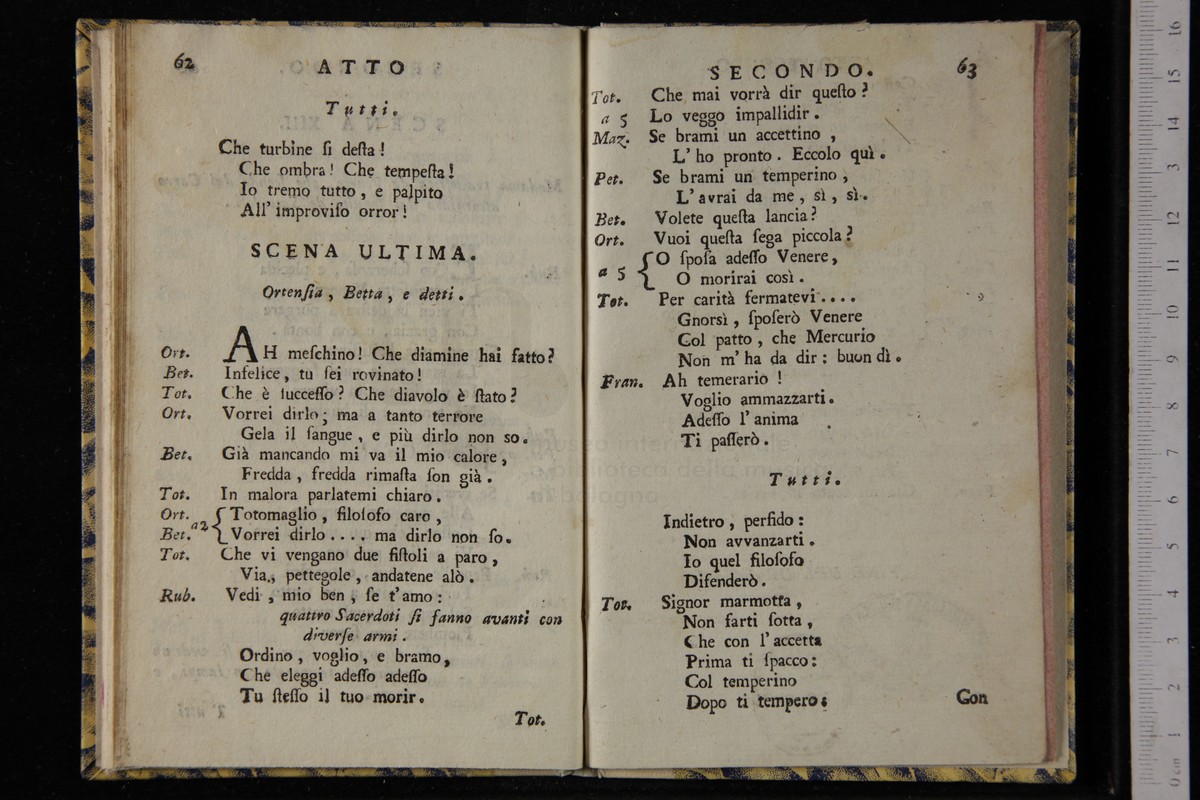 62
ATTO
Tutti.
Che turbine ſi deſta!
Che ombra! Che tempeſta!
Io tremo tutto, e palpito
All' improviſo orror!
SCENA ULTIMA.
Ortenſia, Betta, e detti.
Ort. AH meſchino! Che diamine hai fatto?
Bet. Infelice, tu ſei rovinato!
Tot. Che è ſucceſſo? Che diavolo è ſtato?
Ort. Vorrei dirlo; ma a tanto terrore
Gela il ſangue, e più dirlo non so.
Bet. Già mancando mi va il mio calore,
Fredda, fredda rimaſta ſon già.
Tot. In malora parlatemi chiaro.
Ort. Totomaglio, filoſofo caro,
Bet. a2 Vorrei dirlo.... ma dirlo non ſo.
Tot. Che vi vengano due fiſtoli a paro,
Via, pettegole, andatene alò.
Rub. Vedi, mio ben, ſe t'amo:
quattro Sacerdoti ſi fanno avanti con
diverſe armi.
Ordino, voglio, e bramo,
Che eleggi adeſſo adeſſo
Tu ſteſſo il tuo morir.
Tot.
SECONDO.
63
Tot. Che mai vorrà dir queſto?
a 5 Lo veggo impallidir.
Maz. Se brami un accettino,
L' ho pronto. Eccolo quì.
Pet. Se brami un temperino,
L'avrai da me, sì, sì.
Bet. Volete queſta lancia?
Ort. Vuoi queſta ſega piccola?
a 5 { O ſpoſa adeſſo Venere,
O morirai così.
Tot. Per carità fermatevi....
Gnorsì, ſpoſerò Venere
Col patto, che Mercurio
Non m' ha da dir: buon dì.
Fran. Ah temerario!
Voglio ammazzarti.
Adeſſo l' anima
Ti paſſerò.
Tutti.
Indietro, perfido:
Non avvanzarti.
Io quel filoſofo
Difenderò.
Tot. Signor marmotta,
Non farti ſotta,
Che con l' accetta
Prima ti ſpacco:
Col temperino
Dopo ti tempero;
Gon